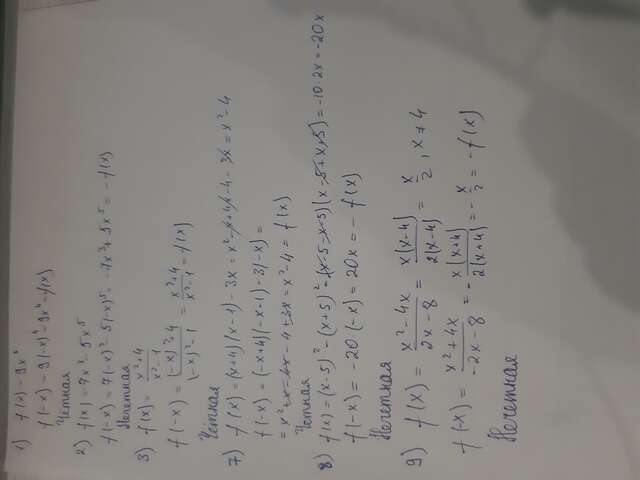 1) f(x) = 9x⁶
f(-x) = 9(-x)⁶ = 9x⁶ = f(x)
Чётная
2) f(x) = 7x³ - 5x⁵
f(-x) = 7(-x)³ - 5(-x)⁵ = -7x³ + 5x⁵ = -f(x)
Нечетная
3) f(x) = (x²+4)/(x²-1)
f(-x) = ((-x)²+4)/((-x)²-1) = (x²+4)/(x²-1) = f(x)
Чётная
7) f(x) = (x+4)(x-1) - 3x = x² - x + 4x - 4 - 3x = x² - 4
f(-x) = (-x+4)(-x-1) - 3(-x) =
= x² + x - 4x - 4 + 3x = x² - 4 = f(x)
Четная
8) f(x) = (x-5)² - (x+5)² = (x-5-x-5)(x-5+x+5) = -10·2x = -20x
f(-x) = -20(-x) = 20x = -f(x)
Нечетная
9) f(x) = (x²-4x)/(2x-8) = x(x-4)/2(x-4) = x/2, x≠4
f(-x) = (x²+4x)/(-2x-8) = -x(x+4)/2(x+4) = -x/2 = -f(x)
Нечетная